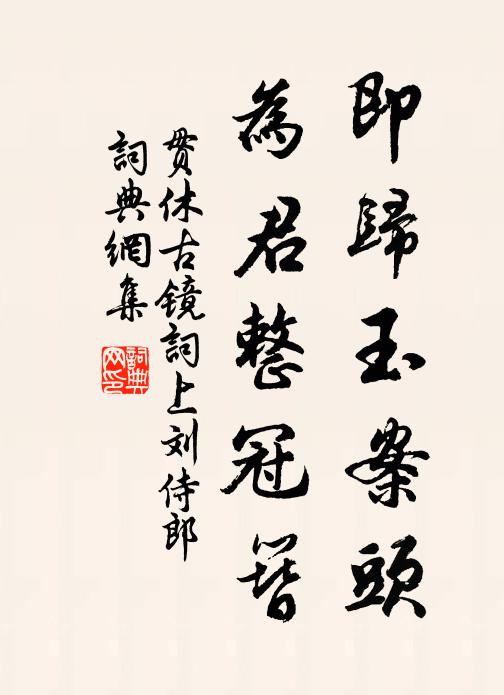 即歸玉案頭
為君整冠簪
贯休古镜詞上刘侍郎
詞典網集
詞典网印